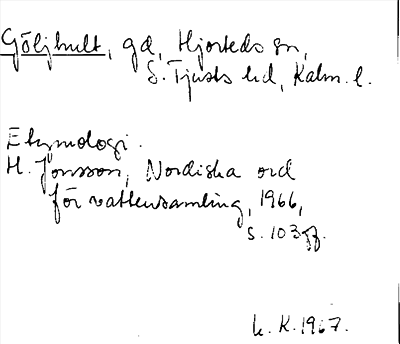 Göljhult, gd, Hjorteds sn,
S. Tjusts hd, Kalm. l.
Etymologi.
H. Jonsson, Nordiska ord
för vattensamling, 1966,
s. 103 ff.
L. K. 1967.